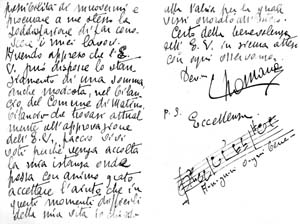 possibilità di muovermi e
procurare a me stesso la
soddisfazione di far cono-
scere i miei lavori.
Avendo appreso che l'E.
V. può disporre lo stan-
ziamento di una somma,
anche modesta, nel bilan-
cio del Comune di Marino,
bilancio che trovasi attual-
mente all'approvazione
dell'E.V., faccio vivi
voti perché venga accolta
la mia istanza onde
possa con animo grato
accettare l'aiuto che in
questo momento difficile
della mia vita io chiedo
alla Patria per la quale
vissi onorando l'
Certo della benevolenza
dell'E.V. in serena attesa
con ogni osservanza.
Dev.
Romano
P.S. Eccellenza
Auguri ogni bene